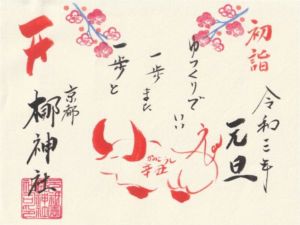 初詣
令和三年
元旦
ゆっくりでいい
一歩また
一歩と
かのとうし
辛丑
京都
梛神社